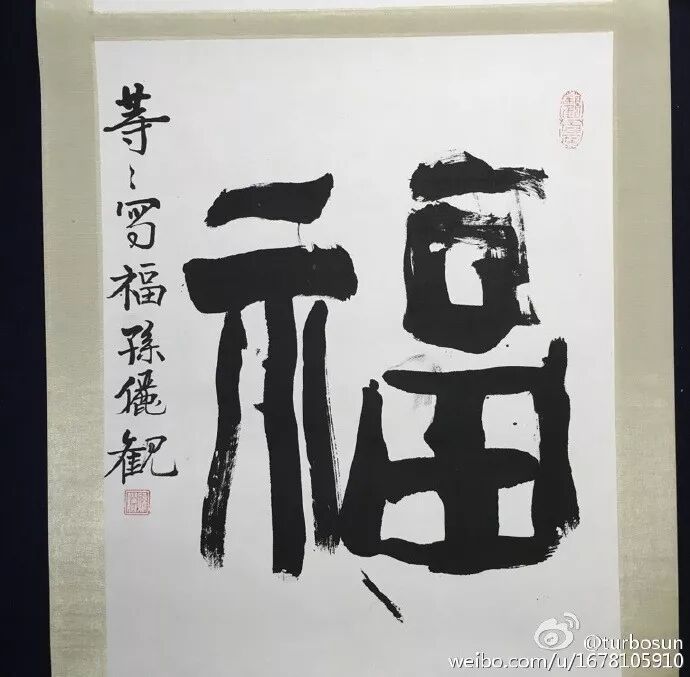 福
等〻写福孫儷観
@turbosun
weibo.com/u/1678105910